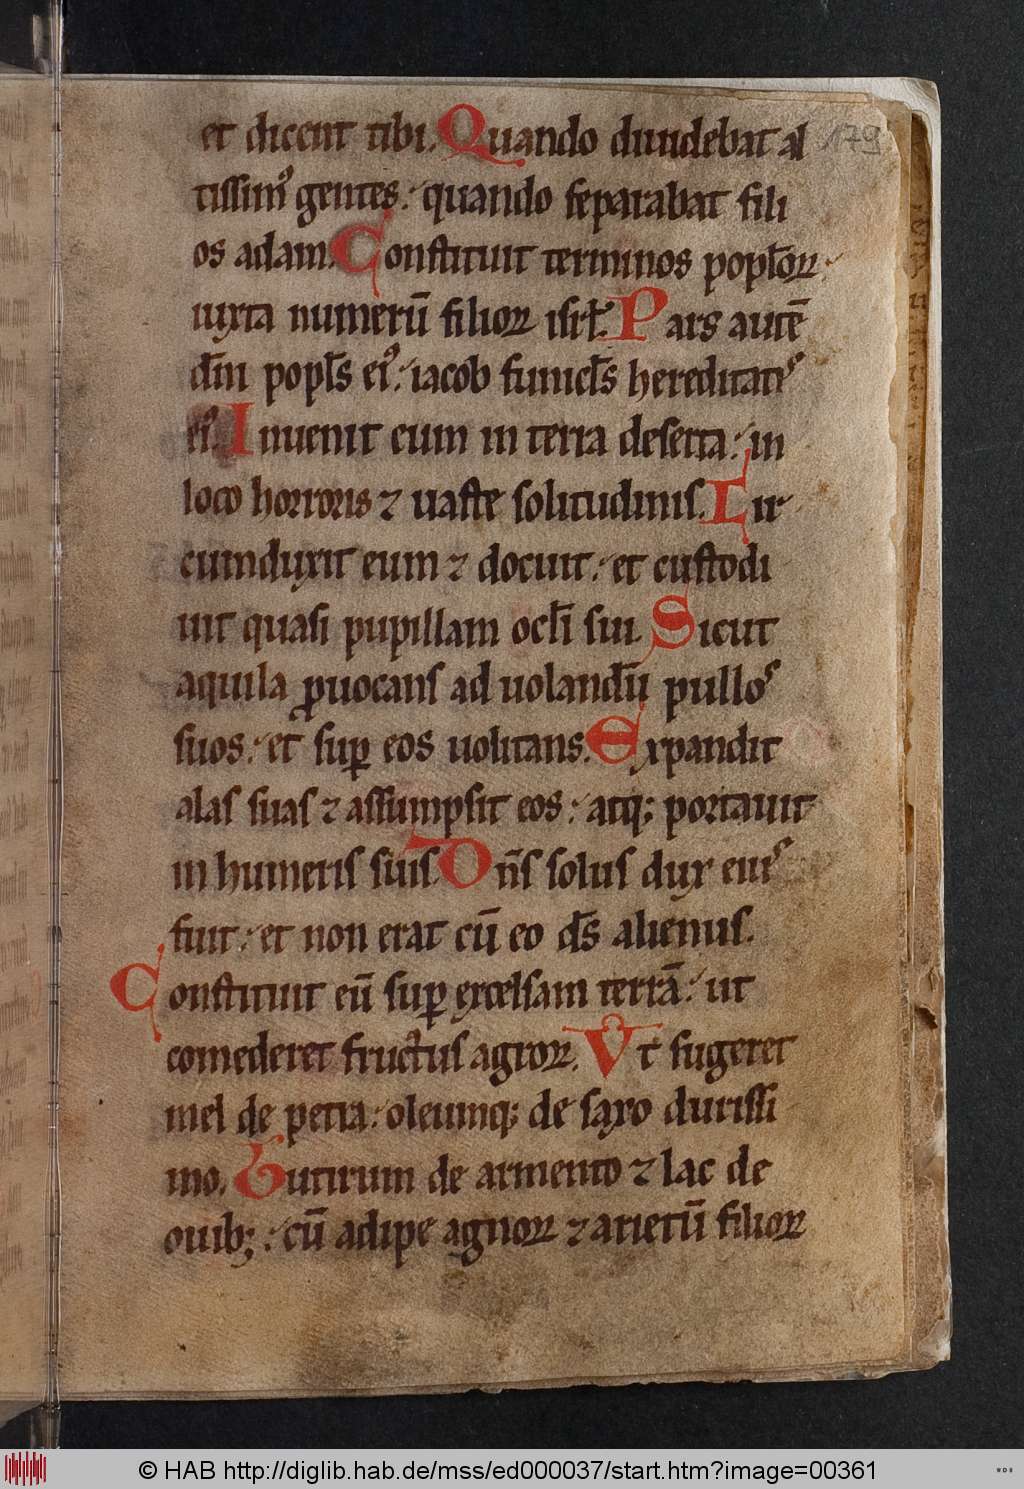 et dicent tibi. Quando diuidebat al
tissimꝰ gentes: quando separabat fili
os adam. Constituit terminos popl̅oꝝ
iuxta numerū filioꝝ isrl̅. Pars autē
dn̅i popl̅s eiꝰ: iacob funicl̅s hereditatiˢ
eiꝰ. Inuenit eum in terra deserta: in
loco horroris ⁊ uaste solitudinis. Cir
cumduxit eum ⁊ docuit: et custodi
uit quasi pupillam ocl̅i sui. Sicut
aquila ꝓuocans ad uolandū pulloˢ
suos: et suꝑ eos uolitans. Expandit
alas suas ⁊ assumpsit eos: atq; portauit
in humeris suis. Dn̅s solus dux eiuˢ
fuit: et non erat cū eo ds̅ alienus.
Constituit eū suꝑ excelsam terrā: ut
comederet fructus agroꝝ. Vt sugeret
mel de petra: oleumq; de saxo durissi
mo. Butirum de armento ⁊ lac de
ouib;: cū adipe agnoꝝ ⁊ arietū filioꝝ
179
© HAB http://diglib.hab.de/mss/ed000037/start.htm?image=00361